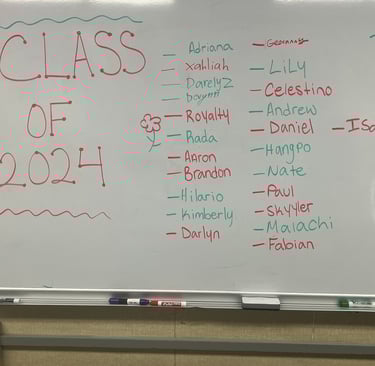 CLASS
OF
2024
- Adriana
- xahliah
- Darelyz
- Royalty
- Rada
- Aaron
- Brandon
- Hilario
- Kimberly
- Darlyn
- LiLy
- Celestino
- Andrew
- Daniel
- Hangpo
- Nate
- Paul
- Skyyler
- Malachi
- Fabian